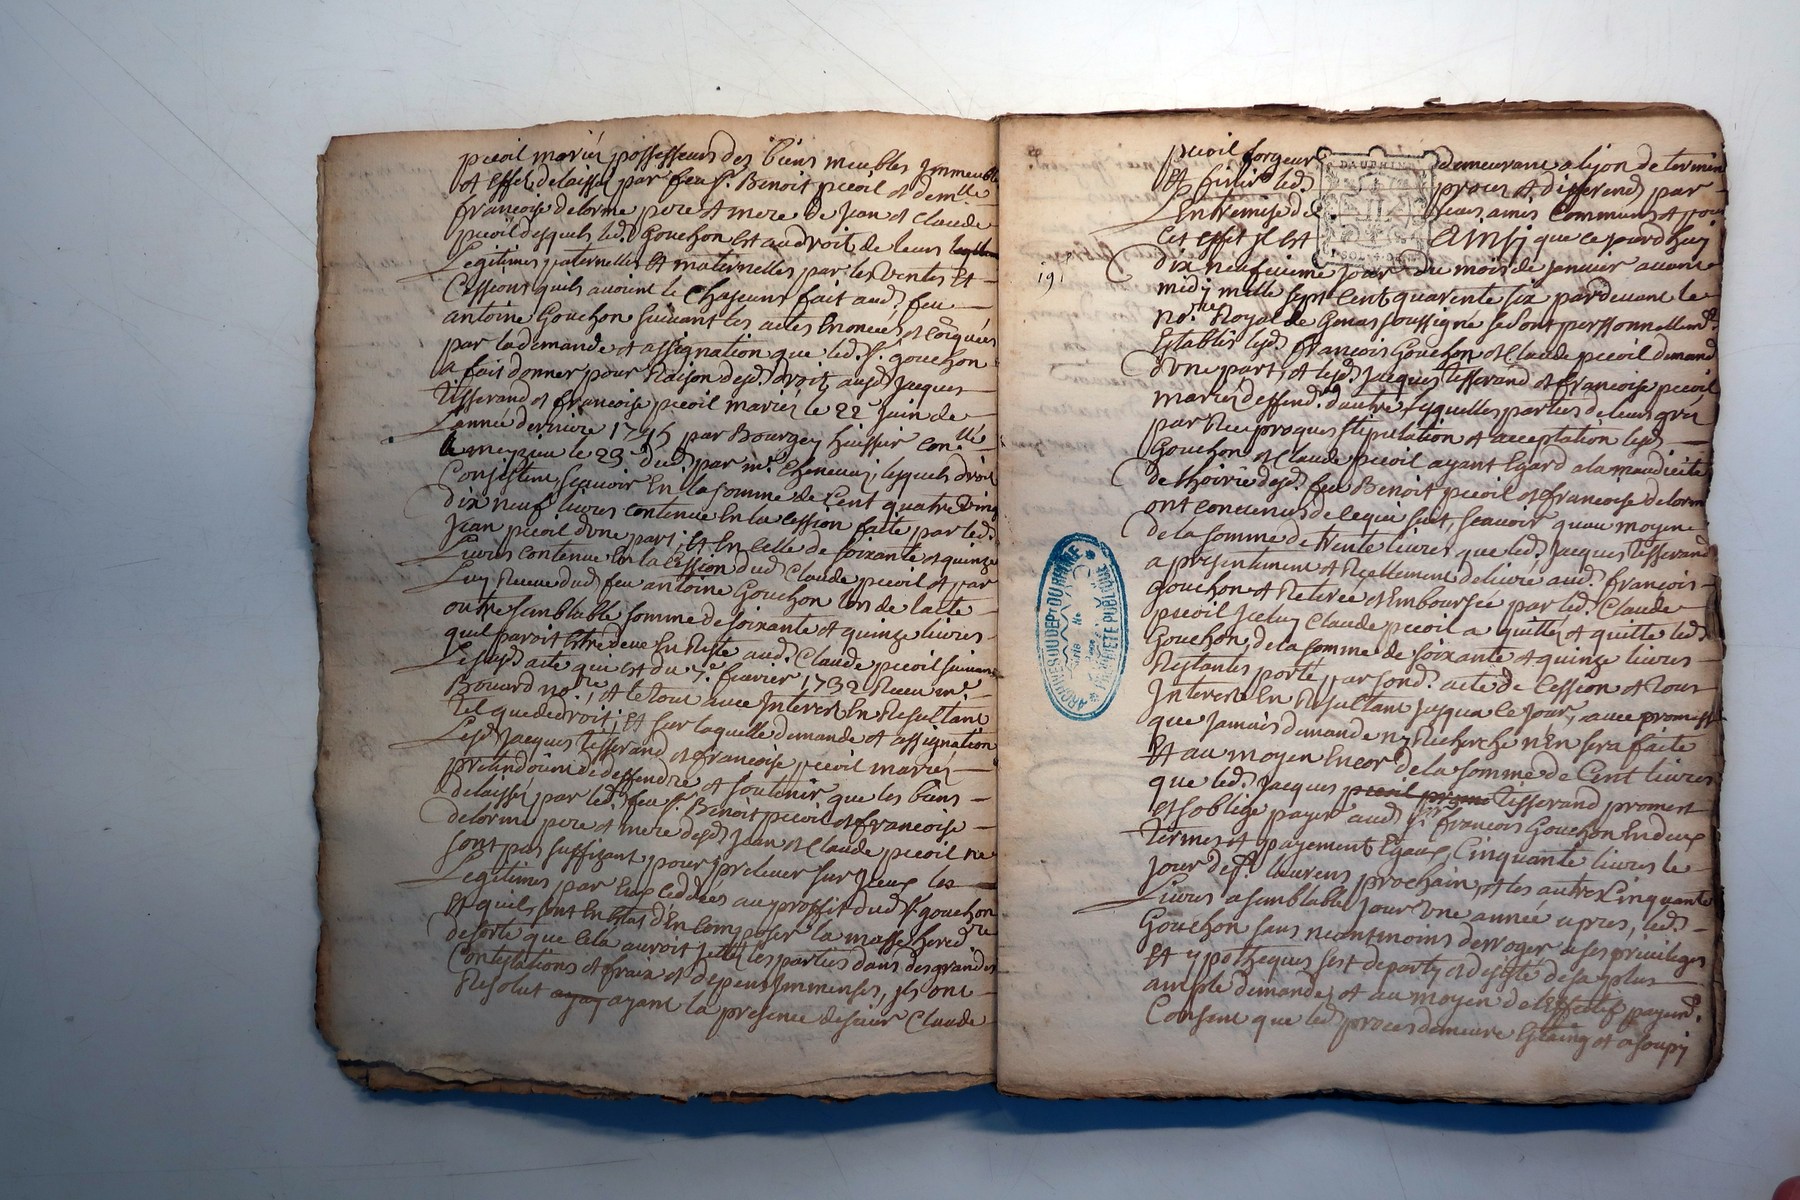 picoil mariés possesseurs des biens meubles Immeubles
et effets delaissés par feu Sr. Benoit picoil et demlle
francoise delorme pere et mere de Jean et Claude
picoil desquels led. Gouchon est au droit de leurs
Legitimes paternelles et maternelles par les Ventes et
Cessions quils avoient le Chaseuns fait aud. feu
antoine Gouchon suivant les actes Enoncés et
par la demande et assignation que led. Sr. gouchon
a fait donner pour Raison desd. droits ausd. Jacques
Tisserand et francoise picoil mariés le 22e Juin de
L'année derniere 1745 par Bourgey huissier con.llé
a meyzieu le 23 dud. par mr. lesquels droits
Consistent scavoir En la somme de Cent quatre Vingt
dix neuf livres contenue En la Cession faite par led.
Jean picoil d'une part, et En Celle de soixante et quinze
Livres contenue En la Cession dud. Claude picoil et par
Luy Receue dud. feu antoine Gouchon lors de l'acte
outre semblable somme de soixante et quinze livres
quil paroit Etre deue En Reste aud. Claude picoil suivant
Le susd. acte qui est du 7e. fevrier 1732 Receu me.
Bouard nore., et le tout avec Interest En Resultant
tel que de droit; Et sur laquelle demande et assignation
Lesd. Jacques Tisserand et francoise picoil mariés
pretendoient deffendre et soutenir que les biens
delaissés par led. feu Sr. Benoit picoil et francoise
delorme pere et mere desd. Jean et Claude picoil ne
sont pas suffizant pour prelever sur Iceux les
Legitimes par Eux Ceddées au proffit dud. Sr. gouchon
Et quils sont En Etat d'En Composer la masse heredre
de sorte que Cela auroit Jetté les parties dans des grandes
Contestations et fraix et depens Immenses, ils ont
Resolut ayay ayant la presence de sieur Claude
picoil forgeur demeurant a lyon de terminer
Et finir led. proces et differends par
L'Entremise de leurs amis Communs et pour
Cet effet il est
AINSI que ce jourd'huy
19e
DAUPHINE
dix neufvieme jour du mois de janvier avant
midy mille sept Cent quarente six pardevant le
nore. Royal de Genas soussigné se sont perssonnellemt.
Etablis lesd. francois Gouchon et Claude picoil demand.
d'une part, et lesd. Jacques Tisserand et francoise picoil
mariés deffend. d'autre lesquelles parties de leurs gréz
par Reciproques stipulation et acceptation lesd.
Gouchon et Claude picoil ayant Egard a la modicité
de l'hoirie desd. feu Benoit picoil et francoise delorme
ont convenus de ce qui suit, scavoir quau moyene
de la somme de trente livres que led. Jacques Tisserand
a presentement et Reellement delivré aud. francois
gouchon et Retirée et Emboursée par led. Claude
picoil Iceluy Claude picoil a quitté et quitte led.
Gouchon, de la somme de soixante et quinze livres
Restantes porté par sond. acte de Cession et tous
Interest En Resultant jusqua ce jour, avec promesse
que jamais demande ny Recherche n'En sera faite
Et au moyen Encor de la somme de Cent livres
que led. Jacques picoil Tisserand promet
et soblige payer aud. Sr. francois Gouchon En deux
termes et payement Egaux, Cinquante livres le
jour de St. laurens prochain, et les autres Cinquante
Livres a semblable jour Une année apres, led.
Gouchon sans neantmoins derroger a ses privileges
Et ypotheques sest departy et desisté de sa plus
ample demande, et au moyen de l'Effectif payemt.
Consent que led. proces demeure Etaing et assoupy
ARCHIVES DU DEPT DU RHÔNE
PROPRIÉTÉ PUBLIQUE